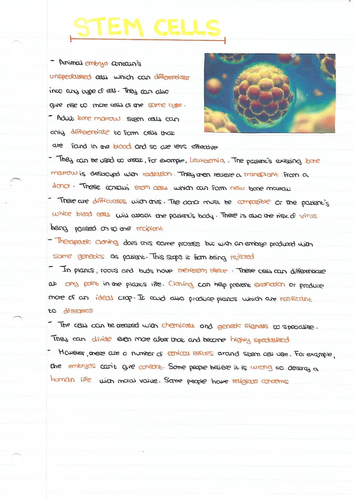 STEM CELLS
- Animal embryo contain's
unspecialised cells which can differentiate
into any type of cell. They can also
give rise to more cells of the same type.
- Adult bone marrow stem cells can
only differentiate to form cells that
are found in the blood and so are less effective
- They can be used to treat. For example, Leukaemia. The patient's existing bone
marrow is destroyed with radiation. They then receive a transplant from a
donor. These contain stem cells which can form new bone marrow
- There are difficulties with this. The donor must be compatible or the patient's
white blood cells will attack the patient's body. There is also the risk of virus
being passed on to the recipient
- Therapeutic cloning does this same process but with an embryo produced with
same genetics as patient. This stops it from being rejected
- In plants, roots and buds have meristem tissue. These cells can differentiate
at any point in the plant's life. Cloning can help prevent extinction or produce
more of an ideal crop. It could also produce plants which are resistant
to diseases
- The cells can be treated with chemicals and genetic signals to specialise.
They can divide even more after that and become highly specialised
- However, there are a number of ethical issues around stem cell use. For example,
the embryos can't give consent. Some people believe it is wrong to destroy a
human life with moral value. Some people have religious concerns